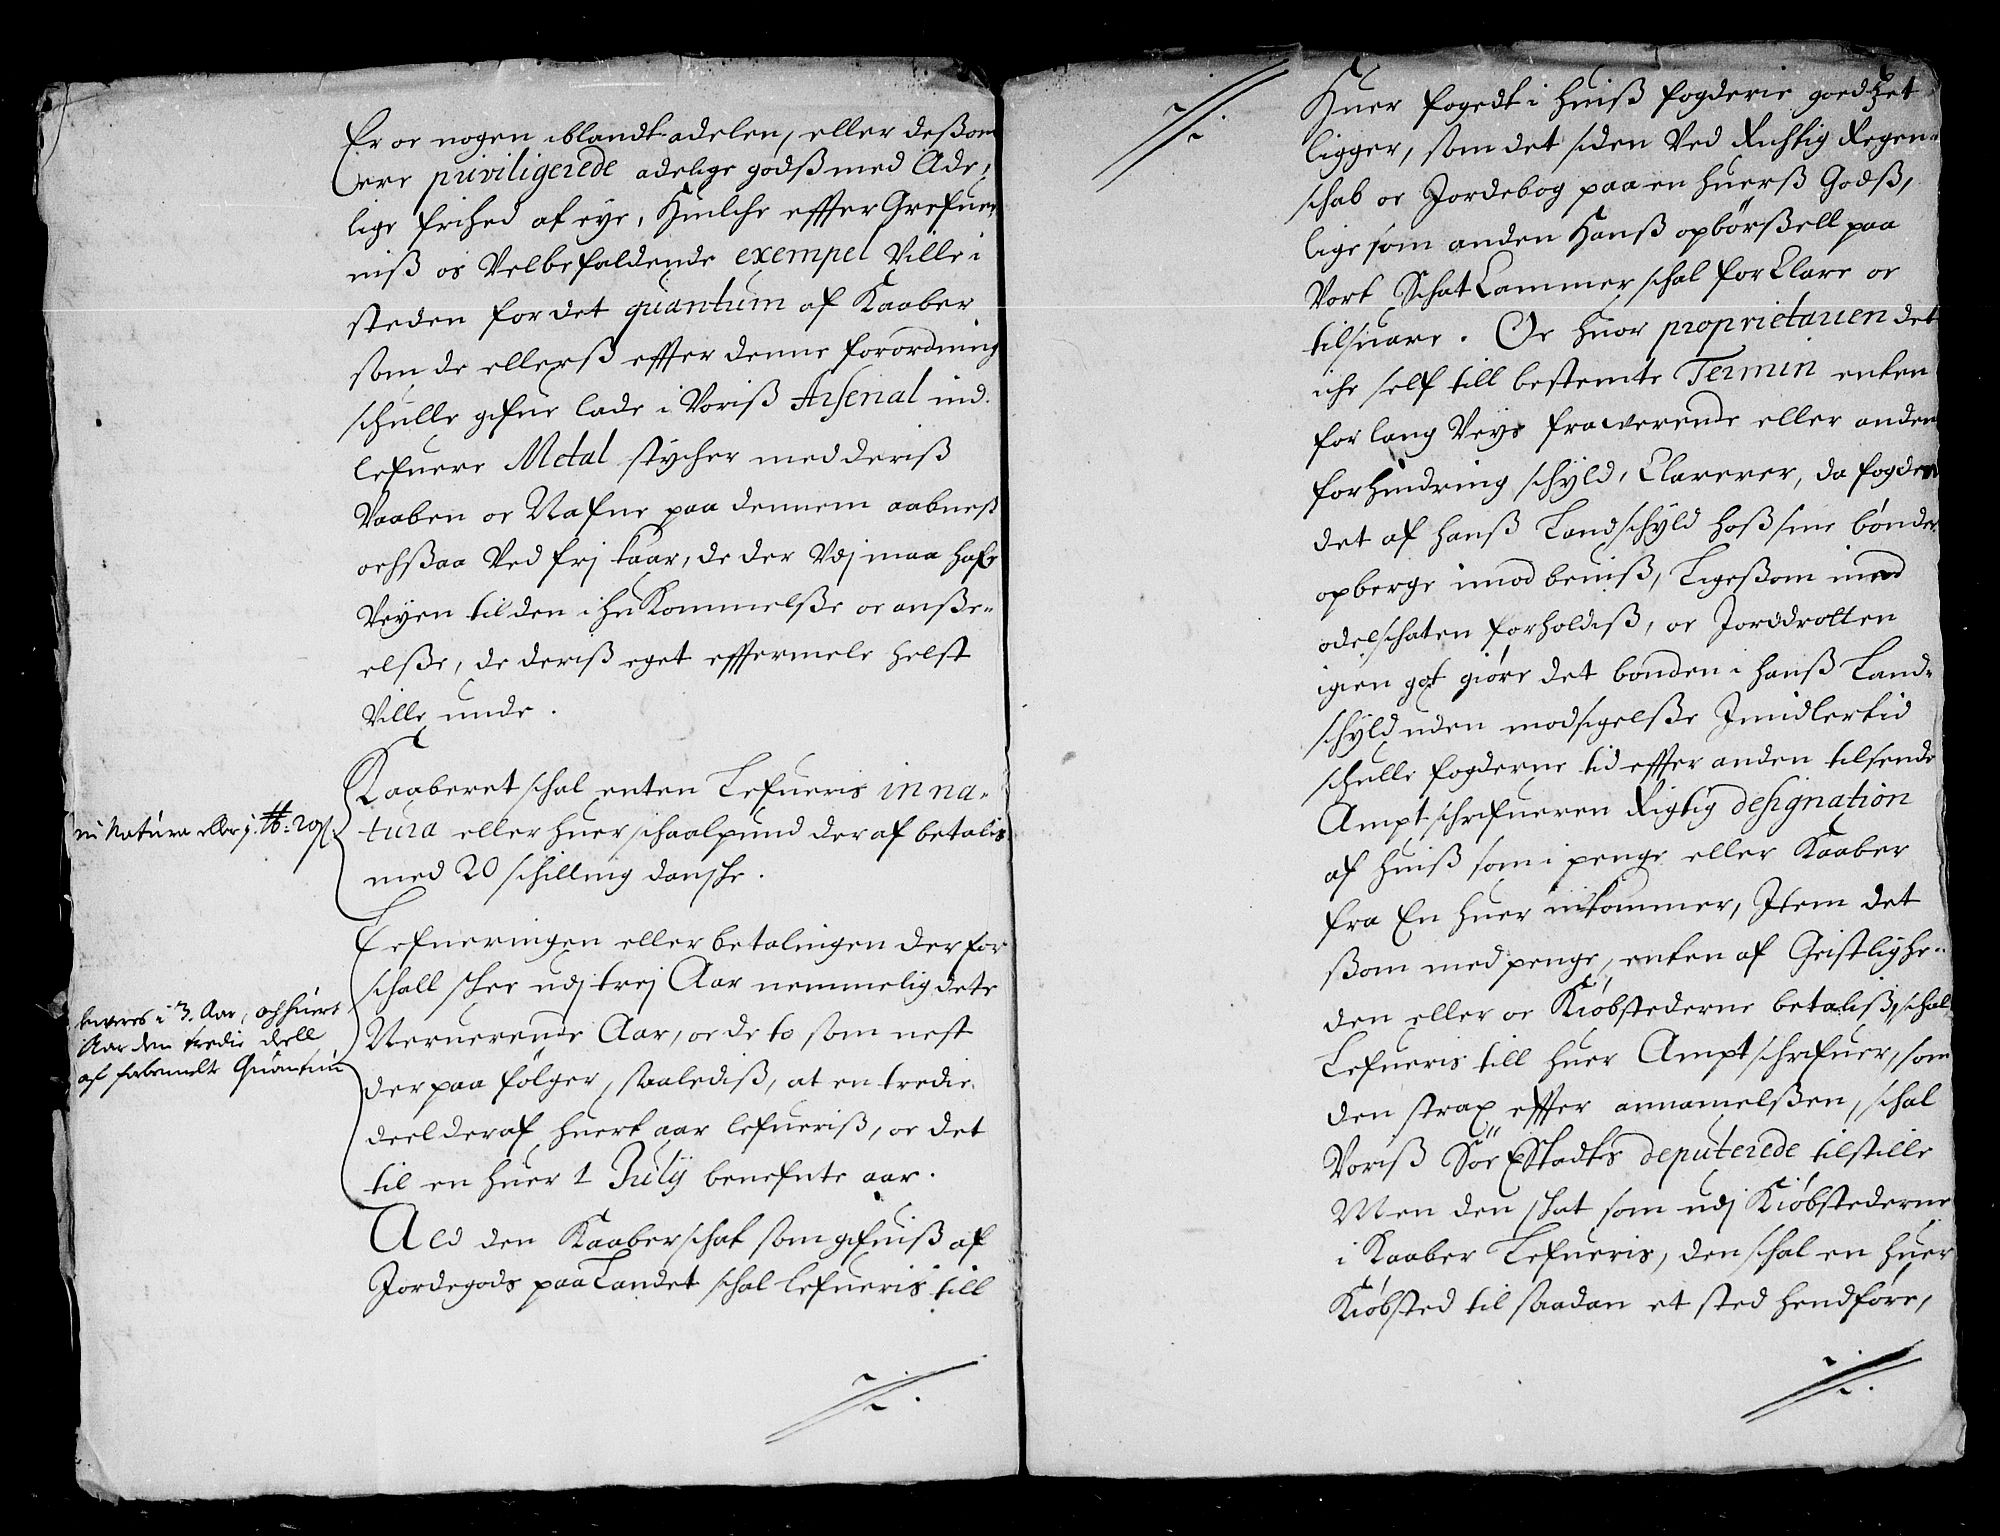 Er oc nogen iblandt adelen, eller deßom
ere priviligerede adelige godß med Ade,
lige frihed af eye, huilche effter Grefuer
niß os Velbefaldende exempel Ville i
steden for det quantum af Kaaber
som de ellerß effter denne forordning
schulle gifue lade i Voriß Arsenal ind
lefuere Metal stycher med deriß
Vaaben oc Nafne paa dennem aabneß
ochßaa Ved frj kaar, de der Vdj maa hafe
Veyen til den ihu Kommelße oc anße-
elße, de deriß eget effermele helst
Ville unde.
Kaaberet schal enten Lefueris in na-
tura eller huer schaalpund der af betalis
med 20 schilling danske.
in Natura eller j. ℔: 20 ß
Lefueringen eller betalingen der for
schall skee udj trej Aar nemmelig dete
Neruerende Aar, oc de to som nest
der paa fölger, saalediß, at en tredie
deel der af huert aar lefueriß, oc det
til en huer 1 July benefnte aar.
leveres i 3. Aar, och huert
Aar den tredie deell
af forbemelte Quantum
Ald den Kaaberschat som gifuiß af
Jordegods paa Landet schal lefueris till
Huer fogedt i huiß fogderie godzet
ligger, som det siden Ved Richtig Regen-
schab oc Jordebog paa en huerß Godß,
lige som anden hanß opbörßell paa
Vort Schat Cammer schal for Clare oc
tilsuare. Oc huor proprietarien det
iche self till bestemte Termin enten
for lang Veys frawerende eller anden
forhindring schyld, Clarerer, da fogden
det af hanß Landschyld hoß sine bönder
opberge imod beuiß, Ligeßom med
odelschaten forholdiß, oc Jorddrotten
igien got giöre det bonden i hanß Land-
schyld uden modsigelße Jmidlertid
schulle fogderne tid effter anden tilsende
Amptschrifueren Rigtig designation
af huiß som i penge eller Kaaber
fra En huer inkommer, Jtem det
ßom med penge, enten af Geistlighe-
den eller oc Kiöbstederne betaliß, schal
Lefueris till huer Amptschrifuer, som
den strax effter annamelßen, schal
Voriß Söe Estadts deputerede tilstille
Men den skat som udj Kiöbstederne
i Kaaber Lefueris, den schal en huer
Kiöbsted til saadan et sted hendföre,